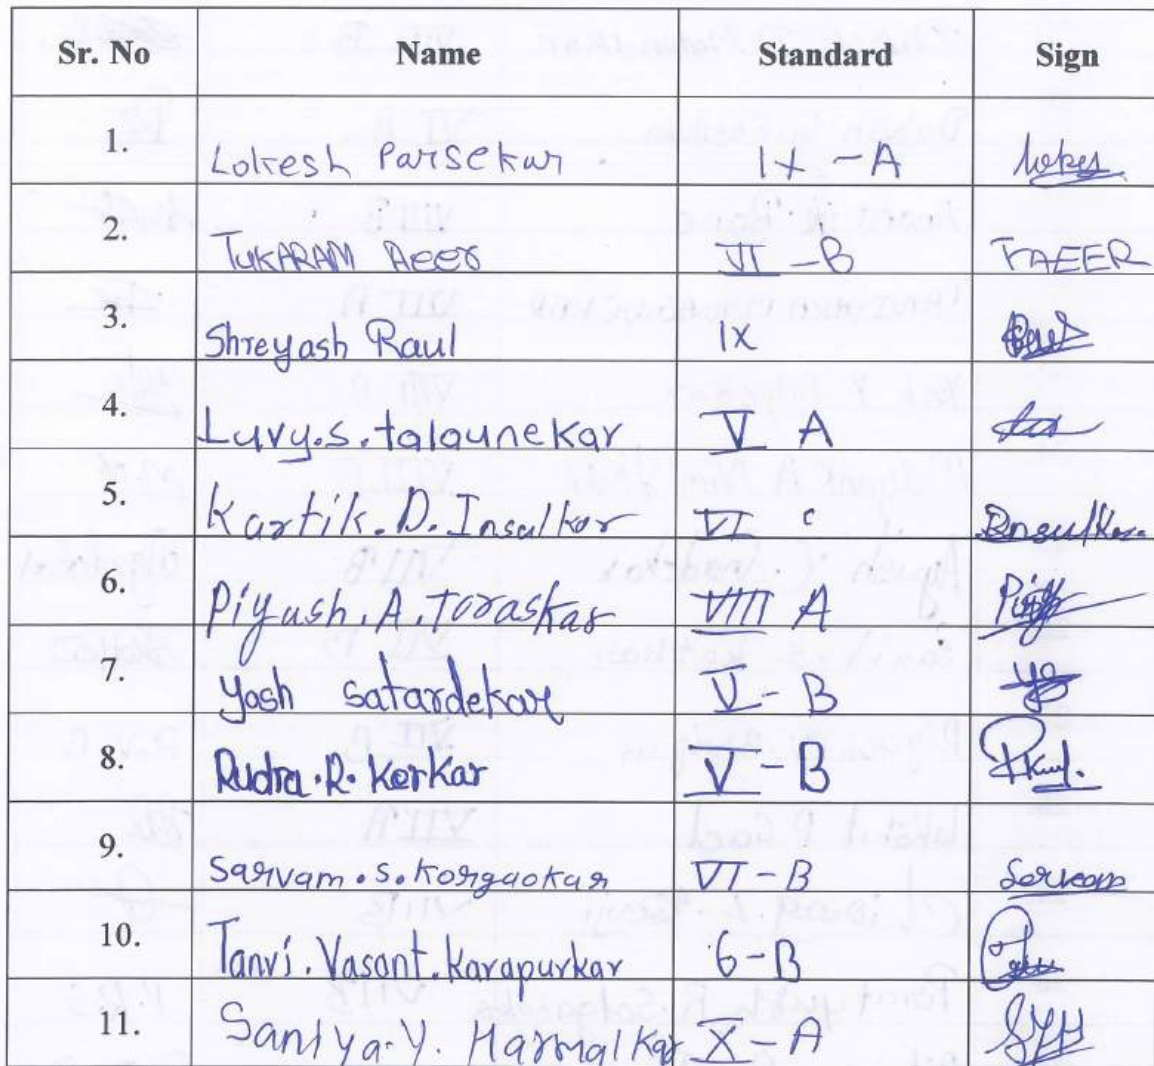 Sr. No Name Standard Sign
1. Lokesh Parsekar IX - A
2. TUKARAM Aeer VI - B TAEER
3. Shreyash Raul IX
4. Luvy.s.talaunekar V A
5. Kartik.D.Insulkar VI c Insulkar
6. Piyush.A.Toraskar VIII A
7. Yash satardekar V - B
8. Rudra.R.Kerkar V - B
9. Sarvam.S.Korgaokar VI - B Sarvam
10. Tanvi.Vasant.Karapurkar 6 - B
11. Saniya.Y. Harmalkar X - A SYH